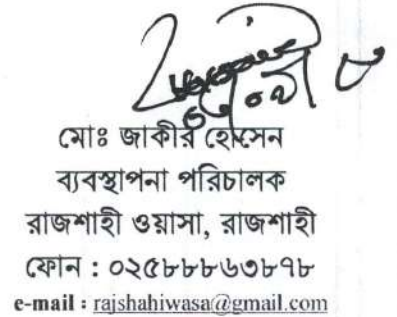 মোঃ জাকীর হোসেন
ব্যবস্থাপনা পরিচালক
রাজশাহী ওয়াসা, রাজশাহী
ফোন : ০২৫৮৮৮৬৩৮৭৮
e-mail : rajshahiwasa@gmail.com